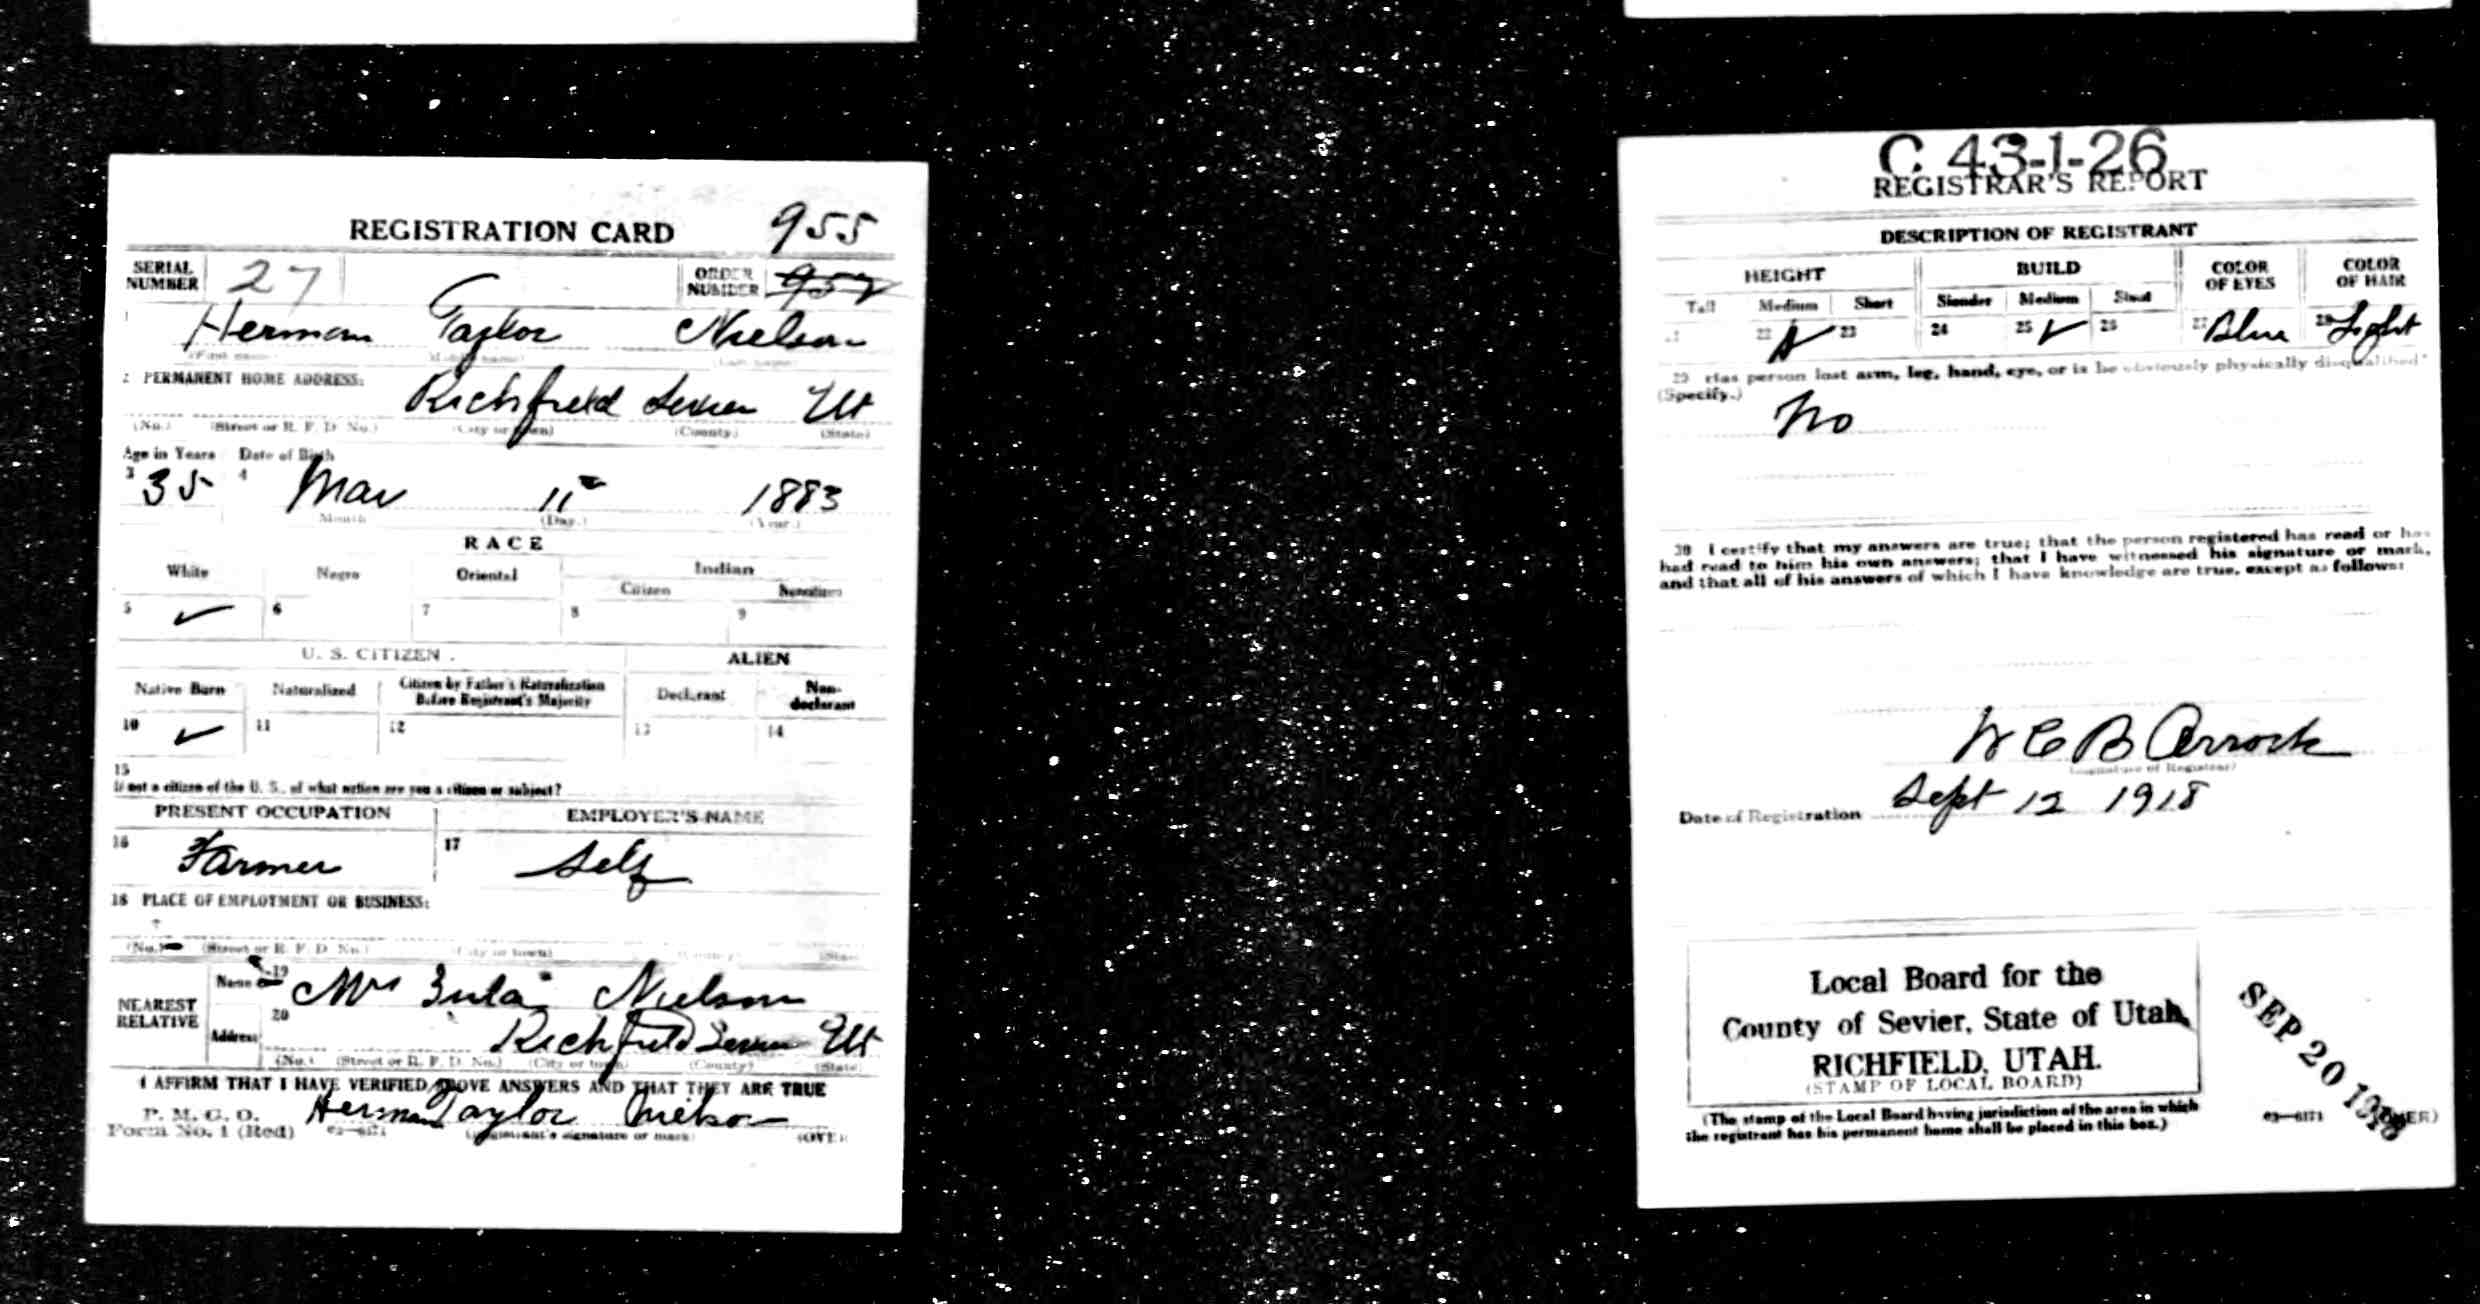 REGISTRATION CARD 955
SERIAL NUMBER 27 ORDER NUMBER 957
1 Herman Taylor Nielson
(First name) (Middle name) (Last name)
2 PERMANENT HOME ADDRESS:
Richfield Sevier Ut
(No.) (Street or R. F. D. No.) (City or town) (County) (State)
Age in Years Date of Birth
3 35 4 Mar 11 1883
Month (Day.) (Year.)
RACE
White Negro Oriental Indian
Citizen Noncitizen
5 ✓ 6 7 8 9
U. S. CITIZEN. ALIEN
Native Born Naturalized Citizen by Father's Naturalization Before Registrant's Majority Declarant Non-declarant
10 ✓ 11 12 13 14
15
If not a citizen of the U. S., of what nation are you a citizen or subject?
PRESENT OCCUPATION EMPLOYER'S NAME
16 Farmer 17 Self
18 PLACE OF EMPLOYMENT OR BUSINESS:
(No.) (Street or R. F. D. No.) (City or town) (County) (State)
NEAREST RELATIVE Name 19 Mrs Nielson
Address 20 Richfield Sevier Ut
(No.) (Street or R. F. D. No.) (City or town) (County) (State)
I AFFIRM THAT I HAVE VERIFIED ABOVE ANSWERS AND THAT THEY ARE TRUE
P. M. G. O.
Form No. 1 (Red) 03—6171 Herman Taylor Nielson
(Registrant's signature or mark) (OVER)
C 43-1-26
REGISTRAR'S REPORT
DESCRIPTION OF REGISTRANT
HEIGHT BUILD COLOR OF EYES COLOR OF HAIR
Tall Medium Short Slender Medium Stout
21 22 ✓ 23 24 25 ✓ 26 27 Blue 28 Light
29 Has person lost arm, leg, hand, eye, or is he obviously physically disqualified?
(Specify.)
No
30 I certify that my answers are true; that the person registered has read or has
had read to him his own answers; that I have witnessed his signature or mark,
and that all of his answers of which I have knowledge are true, except as follows:
W C B
(Signature of Registrar)
Date of Registration Sept 12 1918
Local Board for the
County of Sevier, State of Utah,
RICHFIELD, UTAH.
(STAMP OF LOCAL BOARD)
SEP 20 1918
(The stamp of the Local Board having jurisdiction of the area in which
the registrant has his permanent home shall be placed in this box.)
03—6171 (OVER)